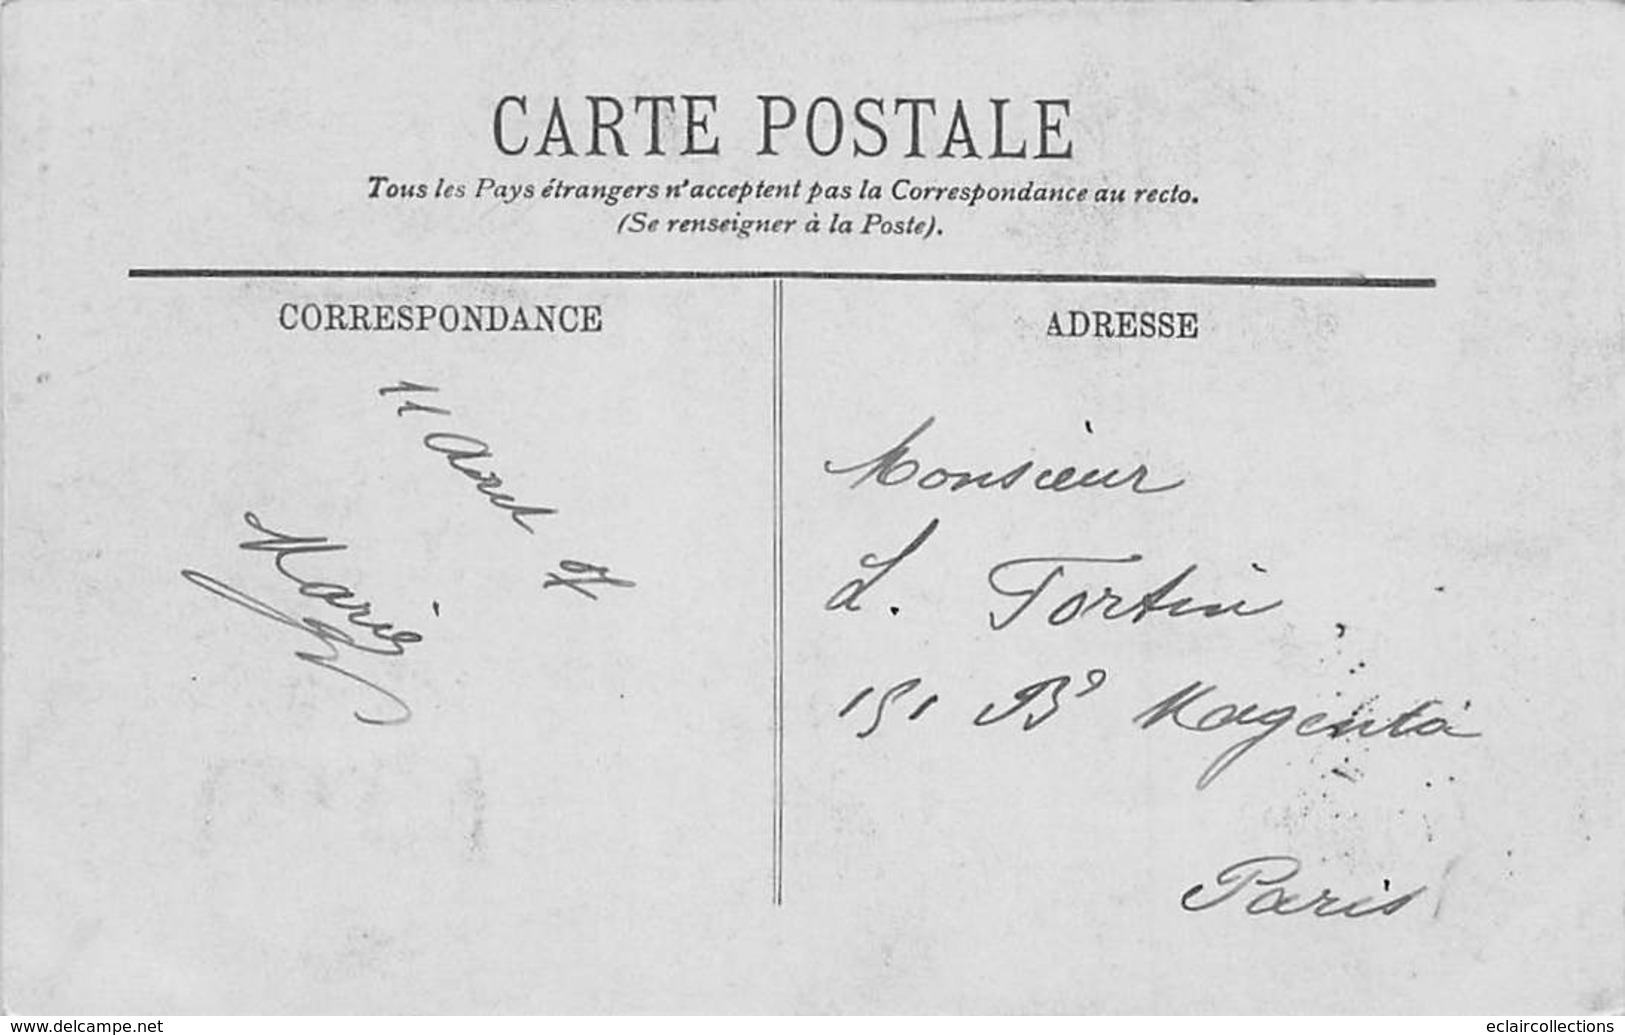 CARTE POSTALE
Tous les Pays étrangers n'acceptent pas la Correspondance au recto.
(Se renseigner à la Poste).
CORRESPONDANCE
11 Août 07
Marie
ADRESSE
Monsieur
L. Fortin
151 Bd Magenta
Paris
www.delcampe.net
eclaircollections